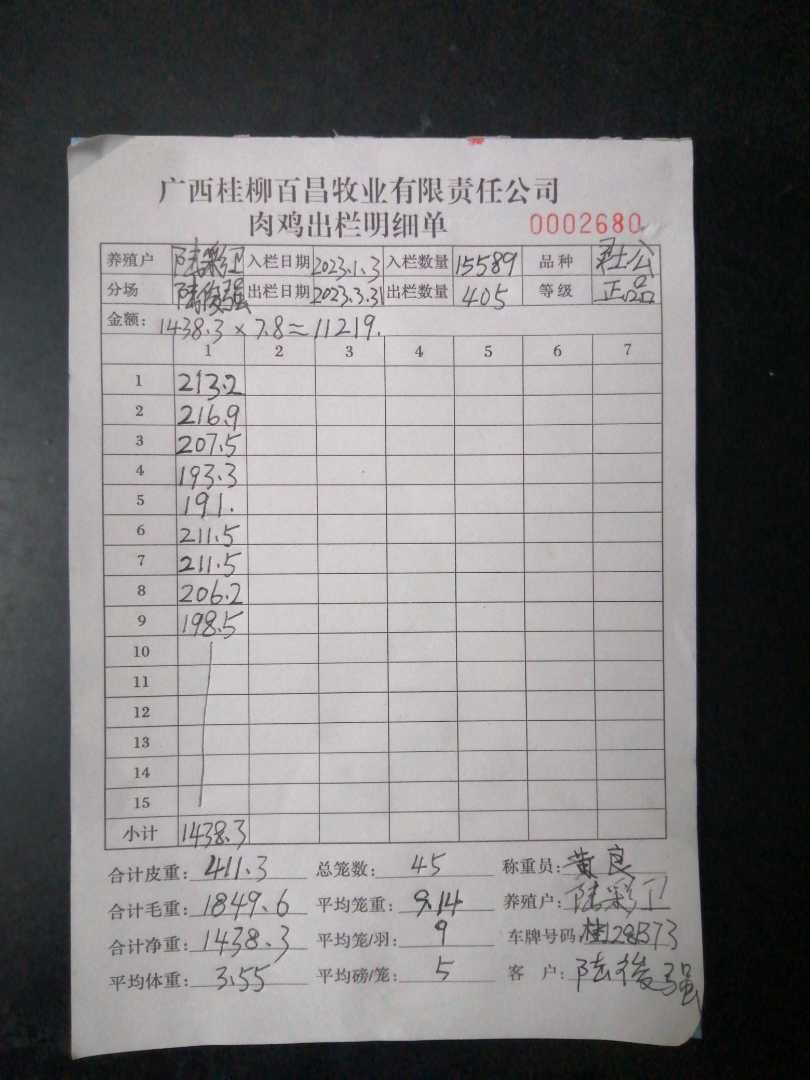 广西桂柳百昌牧业有限责任公司
肉鸡出栏明细单 0002680
养殖户 陆彩卫 入栏日期 2023.1.3 入栏数量 15589 品种 社公
分场 陆俊强 出栏日期 2023.3.31 出栏数量 405 等级 正品
金额: 1438.3×7.8=11219.
1 2 3 4 5 6 7
1 213.2
2 216.9
3 207.5
4 193.3
5 191.
6 211.5
7 211.5
8 206.2
9 198.5
10
11
12
13
14
15
小计 1438.3
合计皮重: 411.3 总笼数: 45 称重员: 黄良
合计毛重: 1849.6 平均笼重: 9.14 养殖户: 陆彩卫
合计净重: 1438.3 平均笼/羽: 9 车牌号码: 桂128B73
平均体重: 3.55 平均磅/笼: 5 客户: 陆俊强